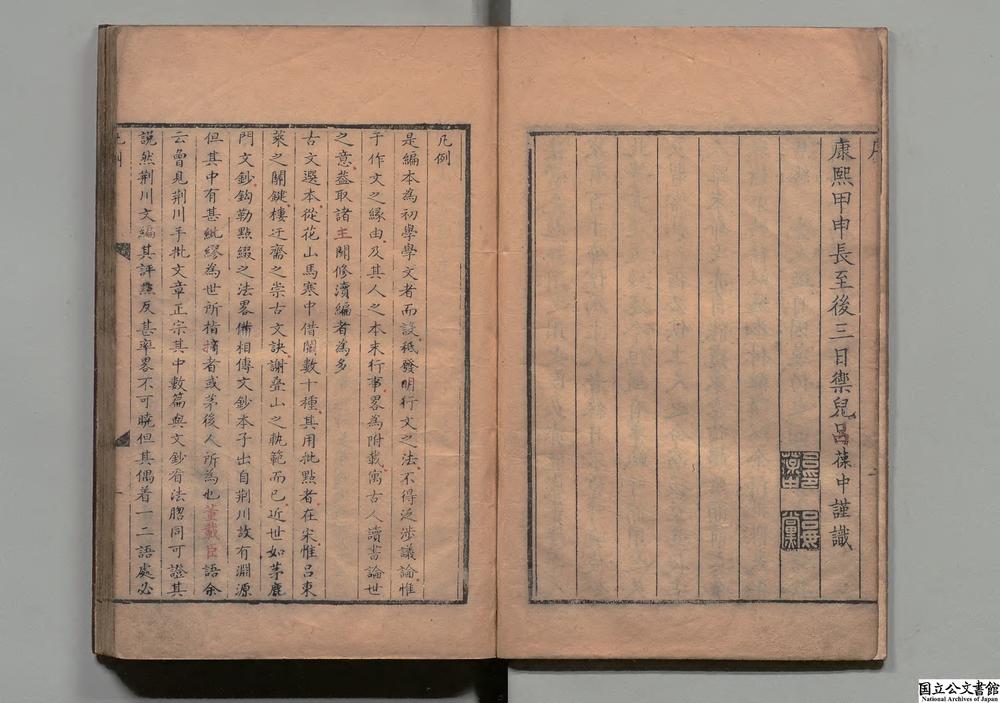 序
康熙甲申長至後三日禦兒呂葆中謹識
凡例
是編本為初學學文者而設秪發明行文之法不得泛涉議論惟
于作文之緣由及其人之本末行事畧為附載寓古人讀書論世
之意蓋取諸王關修瀆編者為多
古文選本從花山馬寒中借閱數十種其用批點者在宋惟呂東
萊之關鍵樓迂齋之崇古文訣謝疊山之軌範而已近世如茅鹿
門文鈔鈎勒點綴之法畧備相傳文鈔本子出自荆川故有淵源
但其中有甚紕繆為世所指摘者或茅後人所為也董載臣語余
云曾見荆川手批文章正宗其中數篇與文鈔看法脗同可證其
說然荆川文編其評點反甚率畧不可曉但其偶着一二語處必
凡例
国立公文書館
National Archives of Japan